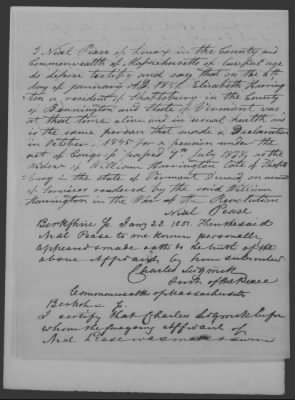 I Neal Pease of Lenox in the County and
Commonwealth of Massachusetts of lawful age
do depose testify and say that on the 6th
day of January A.D. 1851. Elizabeth Harring
ton a resident of Shaftsbury in the County
of Bennington and State of Vermont was
at that time alive and in usual health and
is the same person that made a Declaration
in October 1848 for a pension under the
act of Congress passed 7th July 1838, as the
widow of William Harrington late of Shafts
bury in the state of Vermont Decd on account
of Services rendered by the said William
Harrington in the War of the Revolution
Neal Pease
Berkshire Ss. Jany 23. 1851. Then the said
Neal Pease to me known personally
appeared & made oath to the truth of the
above Affidavit by him subscribed
Charles Sedgwick
Just. of the Peace
Commonwealth of Massachusetts
Berkshire Ss
I certify that Charles Sedgwick before
whom the foregoing affidavit of
Neal Pease was made & sworn